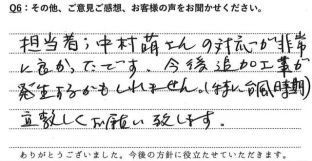 Q6：その他、ご意見ご感想、お客様の声をお聞かせください。
担当者；中村萌さんの対応が非常
に良かったです。今後追加工事が
発生するかもしれません。(特に台風時期)
宜敷しくお願い致します。
ありがとうございました。今後の方針に役立たせていただきます。